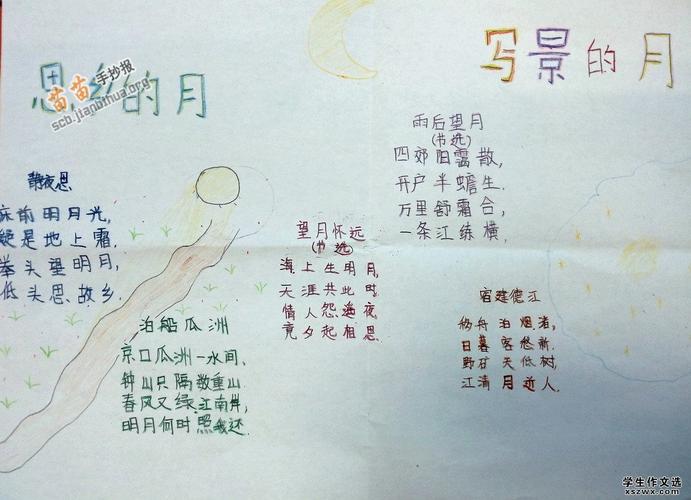 思乡的月
苗苗手抄报
scb.jianbihua.org
静夜思
床前明月光,
疑是地上霜.
举头望明月,
低头思故乡.
泊船瓜洲
京口瓜洲一水间,
钟山只隔数重山.
春风又绿江南岸,
明月何时照我还.
望月怀远
(节选)
海上生明月,
天涯共此时.
情人怨遥夜,
竟夕起相思.
写景的月
雨后望月
(节选)
四郊阳霭散,
开户半蟾生.
万里舒霜合,
一条江练横,
宿建德江
移舟泊烟渚,
日暮客愁新.
野矿天低树,
江清月近人.
学生作文选
xszwx.com